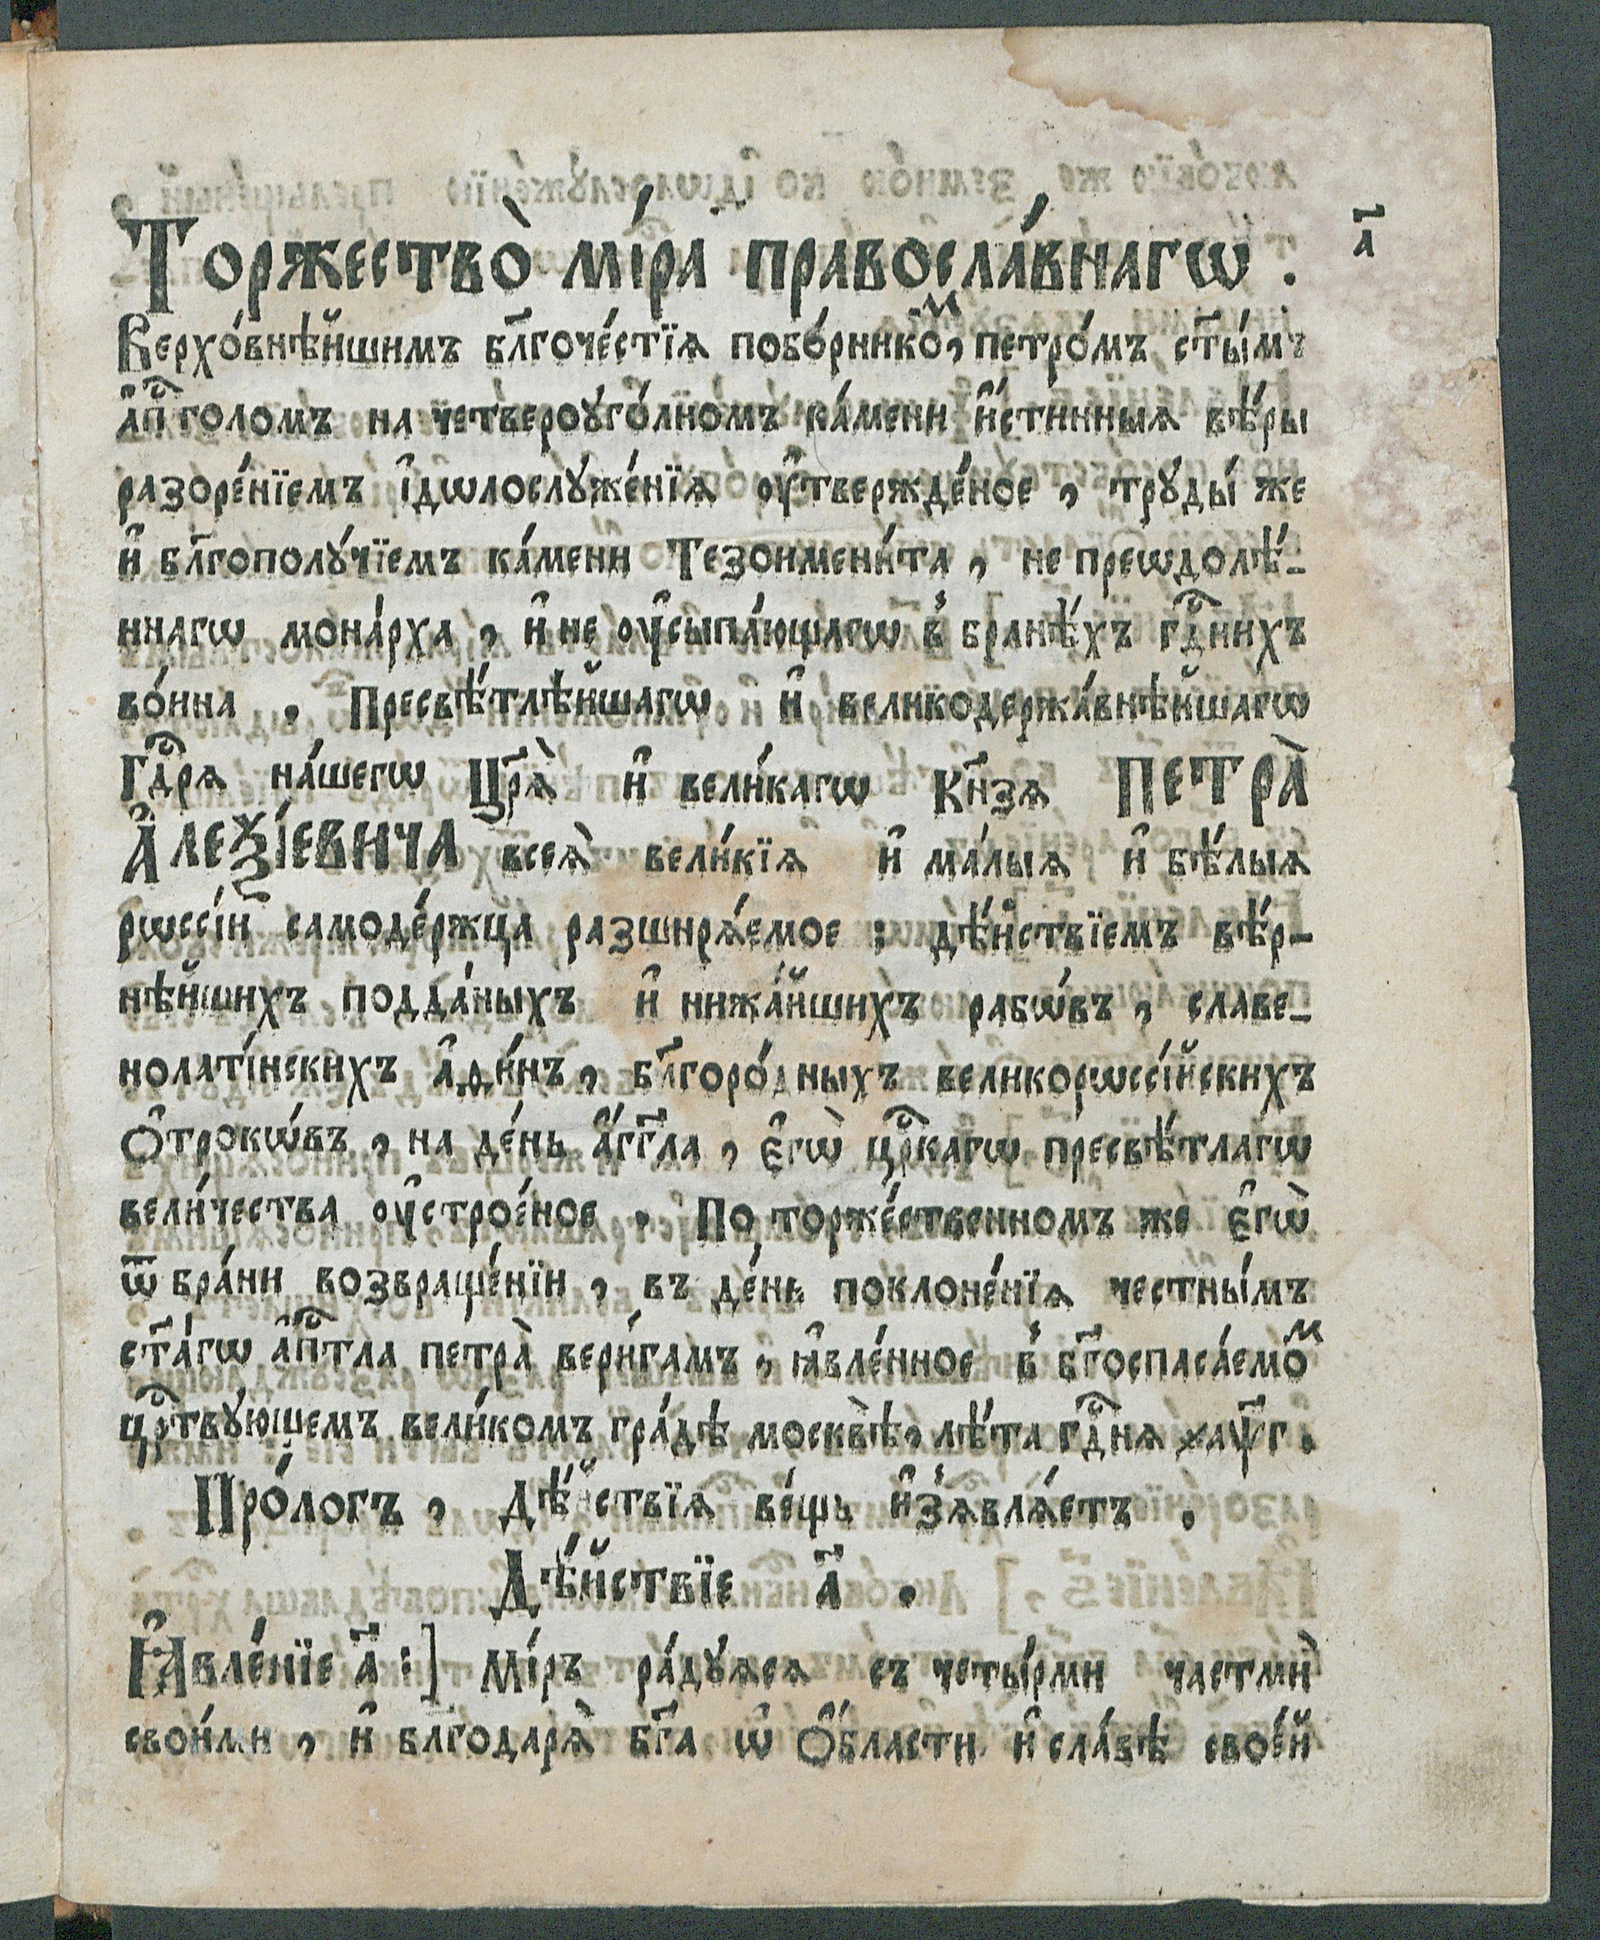 Торжество̀ мі́ра правосла́внагѡ .
а҃
Верхо́внѣйшимъ бл҃гоче́стїѧ побо́рникоⷨ, петро́мъ ст҃ы́мъ
а҆пⷭ҇толомъ на четвероуго́лномъ ка́мени и҆́стинныѧ вѣ́ры
разоре́нїемъ і҆дѡлослꙋже́нїѧ ᲂу҆твержде́ное , трꙋды́ же
и҆ бл҃гополꙋ́чїемъ ка́мени Тезоимени́та , не преѡдолѣ́-
ннагѡ мона́рха , и҆ не ᲂу҆сыпа́ющагѡ в̾ бранѣ́хъ гдⷭ҇нихъ
во́ина . Пресвѣ́тлѣйшагѡ и҆ великодержа́внѣйшагѡ
Гдⷭ҇рѧ на́шегѡ Цр҃ѧ̀ и҆ вели́кагѡ Кн҃зѧ ПЕТРА̀
А҆ЛЕѮІ́ЕВИЧА всеѧ̀ вели́кїѧ и҆ ма́лыѧ и҆ бѣ́лыѧ
рѡссі́и самоде́ржца разширѧ́емое : дѣ́йствїемъ вѣ́р-
нѣйшихъ подда́ныхъ и҆ нижа́йшихъ рабѡ́въ , славе-
нолаті́нскихъ а҆ѳи́нъ , бл҃горо́дныхъ великорѡссі́йскихъ
О҆трокѡ́въ , на де́нь а҆́гг҃ла , є҆гѡ̀ црⷭ҇кагѡ пресвѣ́тлагѡ
вели́чества ᲂу҆строе́ное . По торже́ственномъ же є҆гѡ̀
ѿ бра́ни возвраще́нїи , въ де́нь поклоне́нїѧ честны́мъ
ст҃а́гѡ а҆пⷭ҇тла петра̀ вери́гамъ , ꙗ҆вле́нное в̾ бг҃оспаса́емоⷨ
црⷭ҇твꙋющемъ вели́комъ гра́дѣ москвѣ̀, лѣ́та гдⷭ҇нѧ ҂аѱ҃г .
Про́логъ , Дѣ́йствїѧ ве́щь и҆з̾ѧвлѧ́етъ .
Дѣ́йствїе а҃ .
Ꙗ҆вле́нїе а҃ :] Мі́ръ ра́дꙋѧсѧ съ четы́рми частмѝ
свои́ми , и҆ бл҃годарѧ̀ бг҃а ѡ҆ О҆́бласти и҆ сла́вѣ свое́й